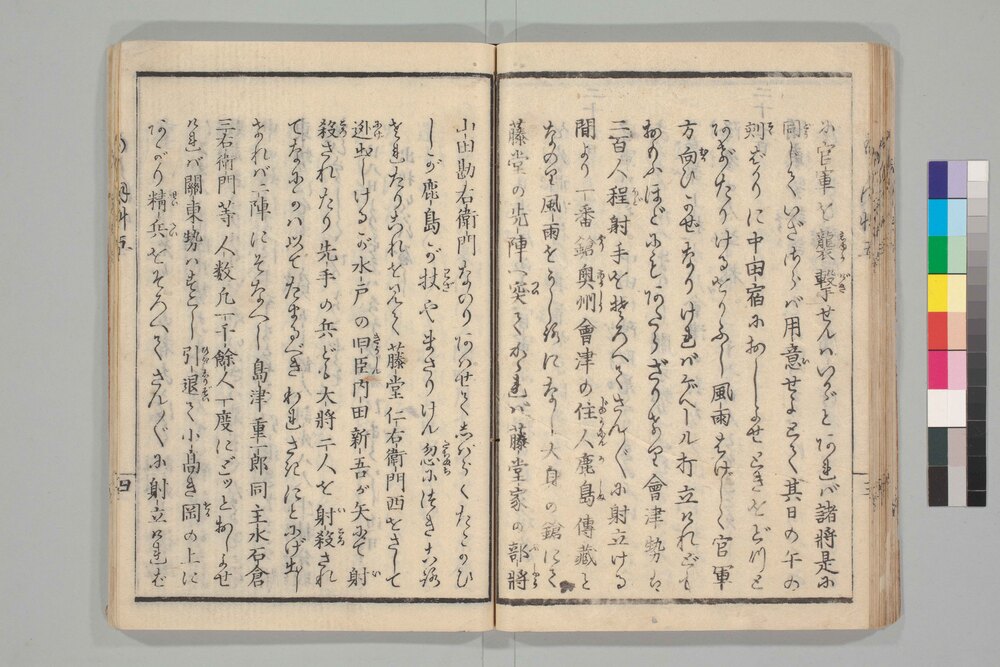 に官軍を襲撃せんハいかゞとあれバ諸將是に
同じていざさらバ用意せよとて其日の午の
刻ばかりに中田宿におしよせときをどつと
あげたりけるをりふし風雨はげしく官軍
方向ひかぜなりけれバゲベール打立けれども
おもふほどにもあたらざりけり會津勢は
二百人程射手をそろへてさん〴〵に射立ける
間より一番鎗奥州會津の住人鹿島傳藏と
なのり風雨をしるになし大身の鎗にて
藤堂の先陣へ突てかゝれバ藤堂家の部將
山田勘右衛門なのりあハせてしばらくたゝかひ
しが鹿島が技やまさりけん忽につきころ
されたりこれを見て藤堂仁右衛門西をさして
迯出しけるが水戸の旧臣門田新吾が矢にて射
殺されたり先手の兵ども大將二人を射殺され
てなにかハ以てたまるべきわれさきにとにげ出し
けれバ二陣にそなへし島津重郎同主水石倉
三右衛門等人数凡一千餘人一度にどッとおしよせ
けれバ關東勢ハすこし引退て小高き岡の上に
あがり精兵をそろへてさん〴〵に射立けれど